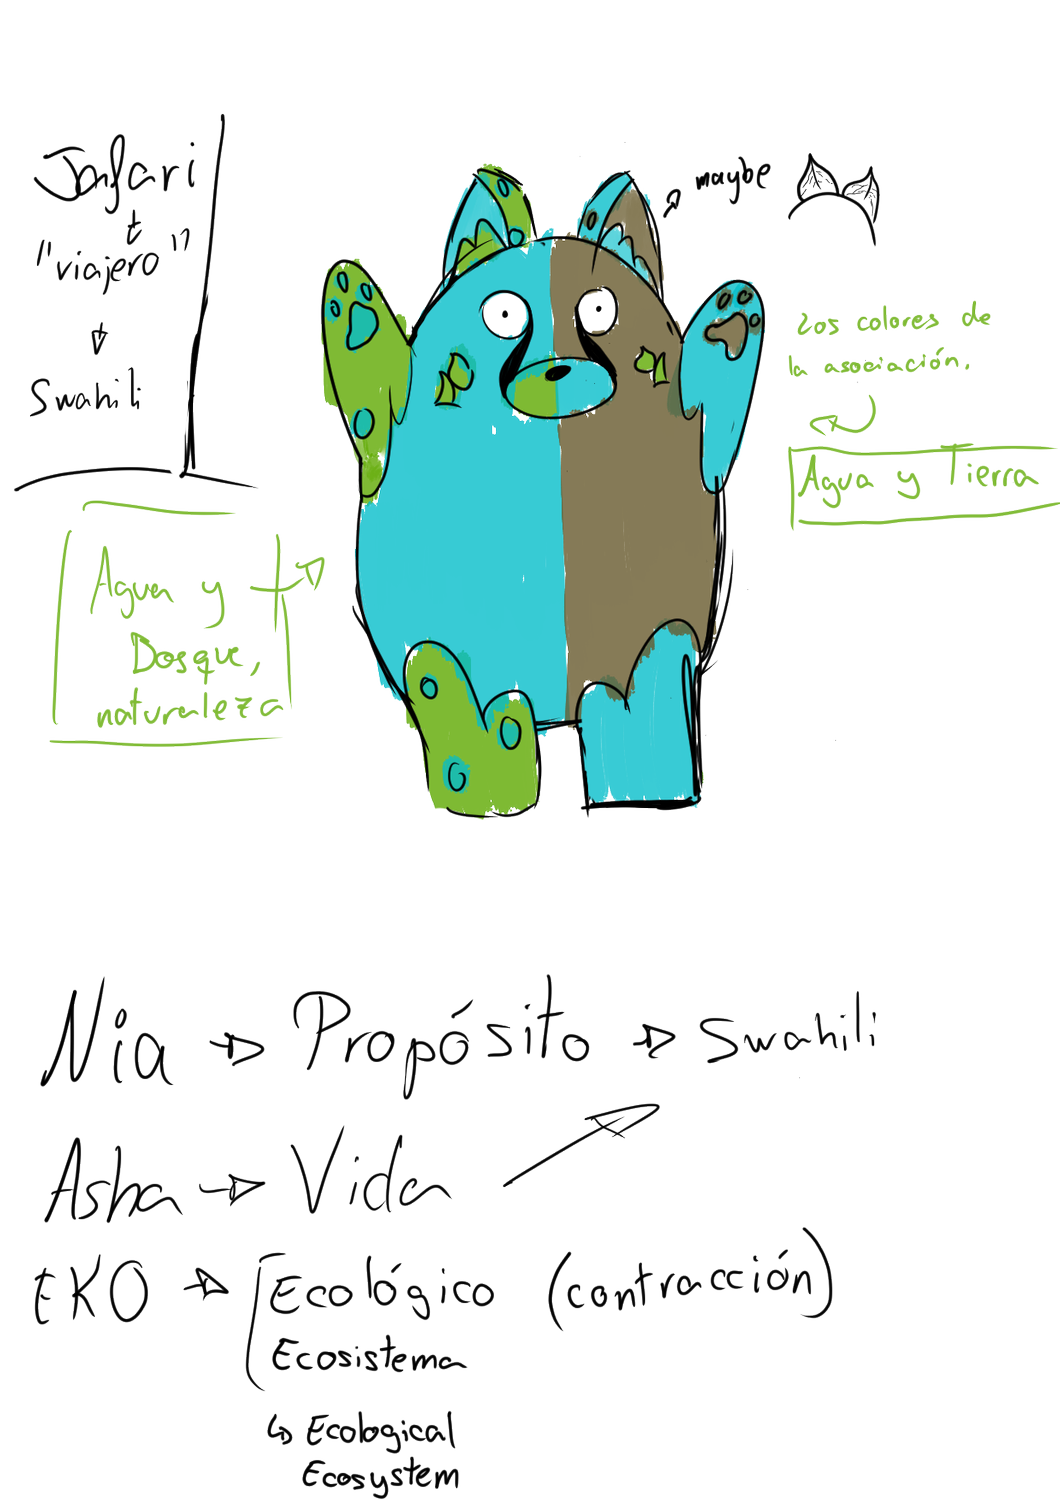 Jafari
"viajero"
Swahili
maybe
Los colores de
la asociación.
Agua y Tierra
Agua y
Bosque,
naturaleza
Nia → Propósito → Swahili
Asha → Vida
EKO → Ecológico (contracción)
Ecosistema
↳ Ecological
Ecosystem